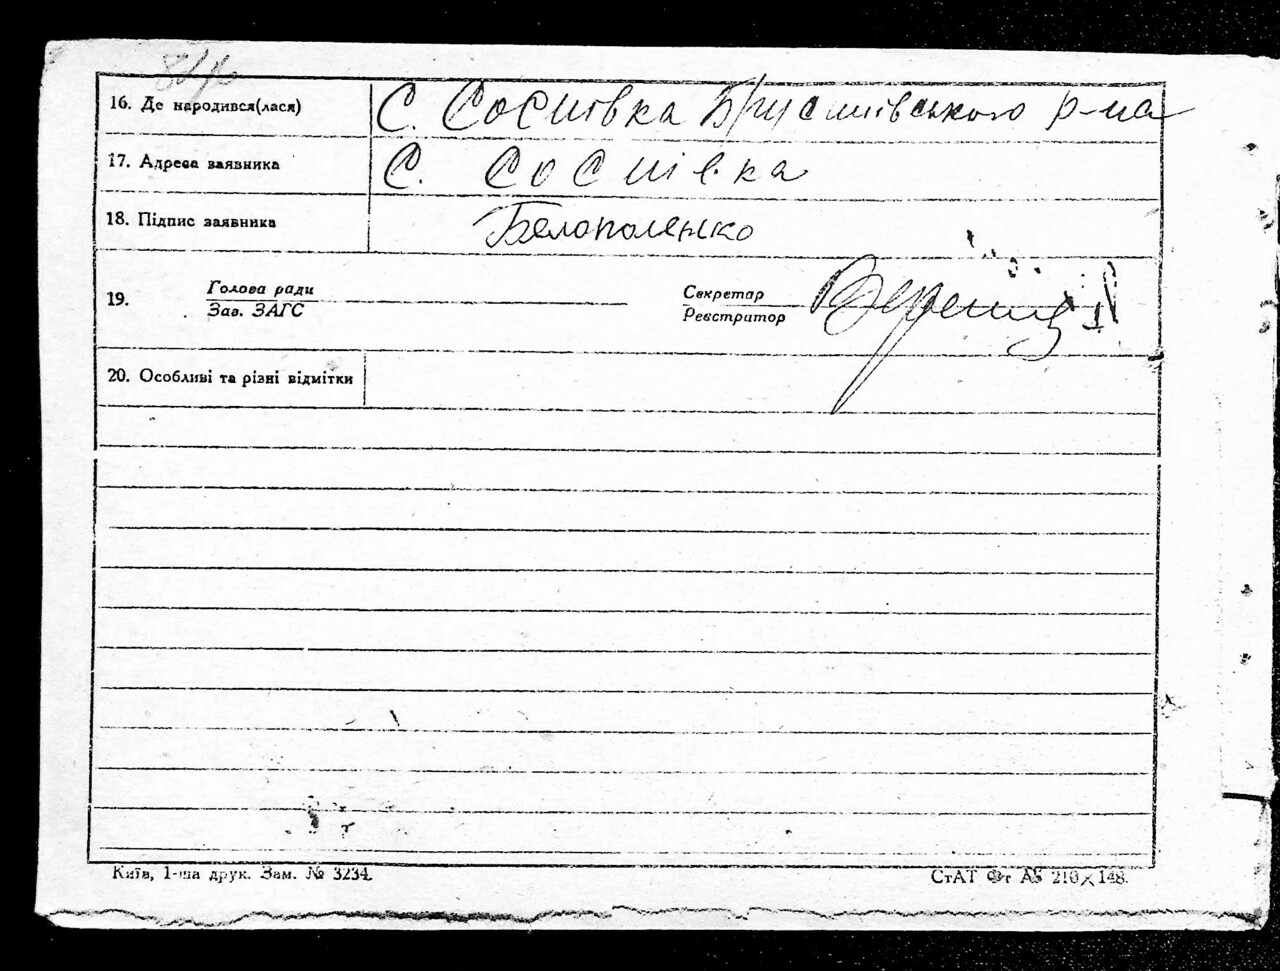 16. Де народився(лася) С. Соснівка Брусилівського р-на
17. Адреса заявника С. Соснівка
18. Підпис заявника Белополенко
19. Голова ради
Зав. ЗАГС
Секретар
Реєстратор
20. Особливі та різні відмітки
Київ, 1-ша друк. Зам. № 3234.
СтАТ Фт А5 210×148.